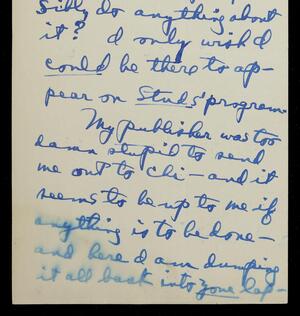 sibly do anything about
it? I only wish I
could be there to ap-
pear on Studs' program.
My publisher was too
damn stupid to send
me out to Chi—and it
seems to be up to me if
anything is to be done—
and here I am dumping
it all back into your lap—